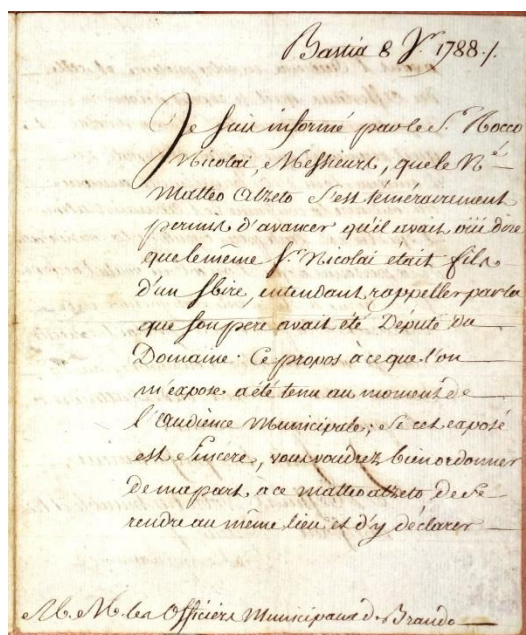 Bastia 8 Jr. 1788./.
Je suis informé par le S.r Rocco
Nicolai, Messieurs, que le N.é
Matteo Alzeto s'est témérairement
permis d'avancer qu'il avait oüi dire
que le même S.r Nicolai était fils
d'un sbire, entendant rappeller par la
que son pere avait été Député du
Domaine. Ce propos à ce que l'on
m'expose a été tenu au moment de
l'audience Municipale; Si cet exposé
est Sincere, vous voudrez bien ordonner
de ma part a ce matteo alzeto de se
rendre au même lieu et d'y déclarer
M. M. les Officiers Municipaux de Brando